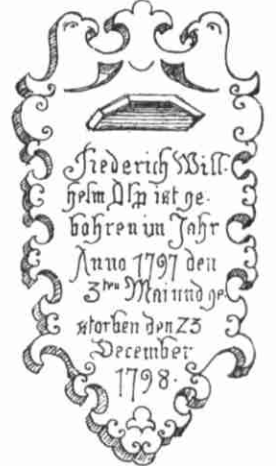 Fiederich Will-
helm ist ge-
bohren im Jahr
Anno 1797 den
3ten Mai und ge
storben den 23
December
1798.